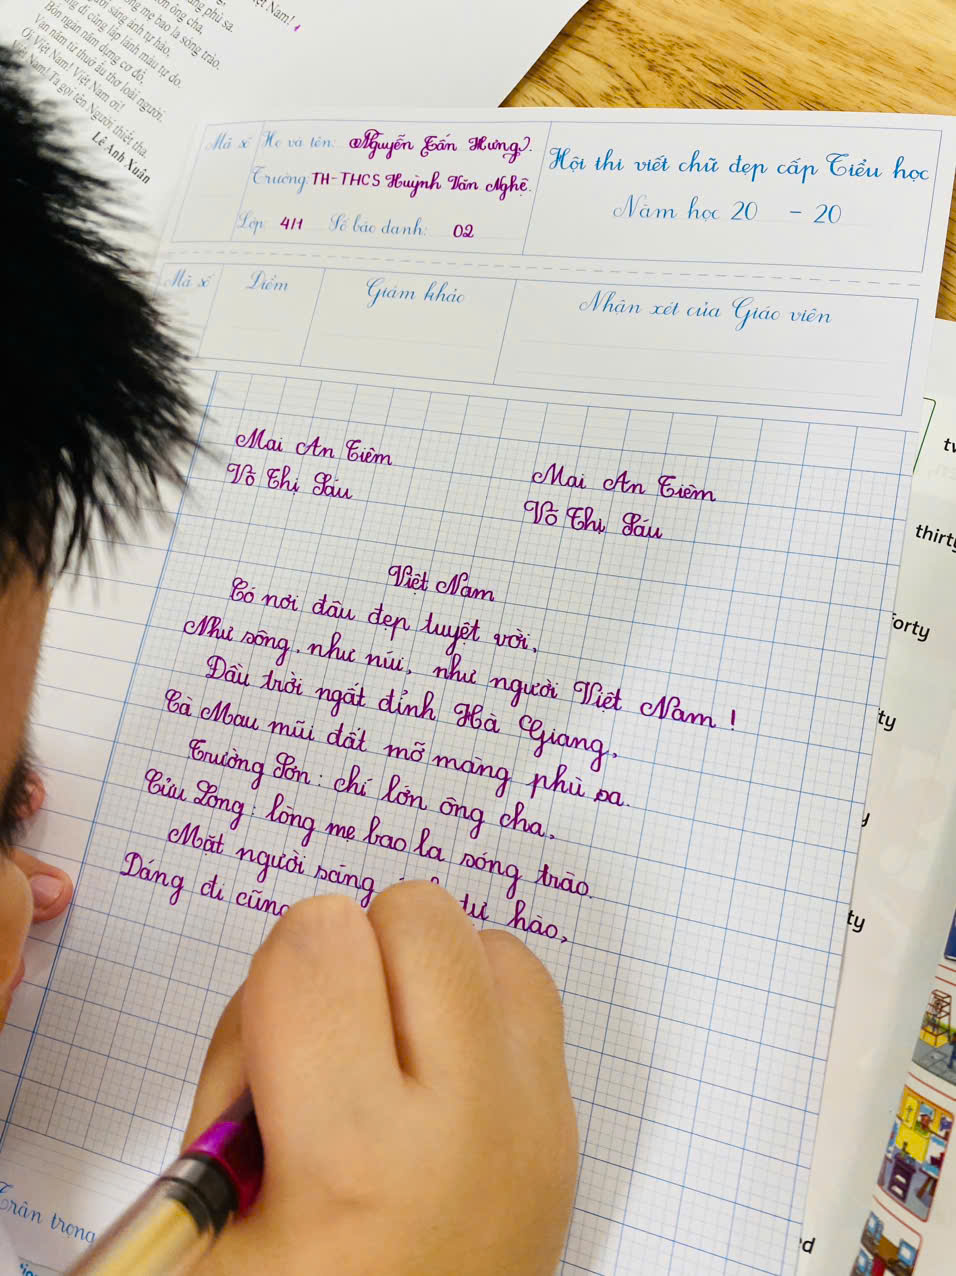 Việt Nam!
phù sa.
ông cha,
mẹ bao la sóng trào.
sáng ánh tự hào,
đi cũng lấp lánh màu tự do.
Bốn ngàn năm dựng cơ đồ,
Vạn năm từ thuở ấu thơ loài người.
Ơi Việt Nam! Việt Nam ơi!
Việt Nam! Ta gọi tên Người thiết tha.
Lê Anh Xuân
Mã số
Họ và tên: Nguyễn Tấn Hưng.
Trường: TH-THCS Huỳnh Văn Nghệ.
Lớp: 4/1 Số báo danh: 02
Hội thi viết chữ đẹp cấp Tiểu học
Năm học 20 - 20
Mã số Điểm Giám khảo Nhận xét của Giáo viên
Mai An Tiêm
Võ Thị Sáu
Mai An Tiêm
Võ Thị Sáu
Việt Nam
Có nơi đâu đẹp tuyệt vời,
Như sông, như núi, như người Việt Nam!
Đầu trời ngất đỉnh Hà Giang,
Cà Mau mũi đất mỡ màng phù sa.
Trường Sơn: chí lớn ông cha,
Cửu Long: lòng mẹ bao la sóng trào.
Mặt người sáng tự hào,
Dáng đi cũng
Trân trọng
tw
thirty
forty
ty
y
ty
d